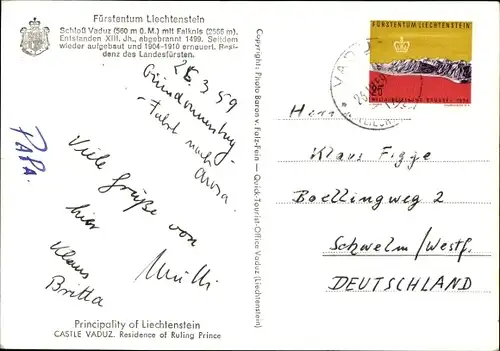 Fürstentum Liechtenstein
Schloß Vaduz (560 m ü.M.) mit Falknis (2566 m).
Entstanden XIII. Jh., abgebrannt 1499. Seitdem
wieder aufgebaut und 1904-1910 erneuert. Resi-
denz des Landesfürsten.
26.3.59
Gründonnerstag-
Fahrt nach
Arosa.
PAPA.
Viele Grüße von
hier
Klaus
Britta
Mutti
Principality of Liechtenstein
CASTLE VADUZ. Residence of Ruling Prince
Copyright: Photo Baron v. Falz-Fein — Quick-Tourist-Office Vaduz (Liechtenstein)
FÜRSTENTUM LIECHTENSTEIN
VADUZ
Herr
Klaus Figge
Boellingweg 2
Schwelm/Westf.
DEUTSCHLAND